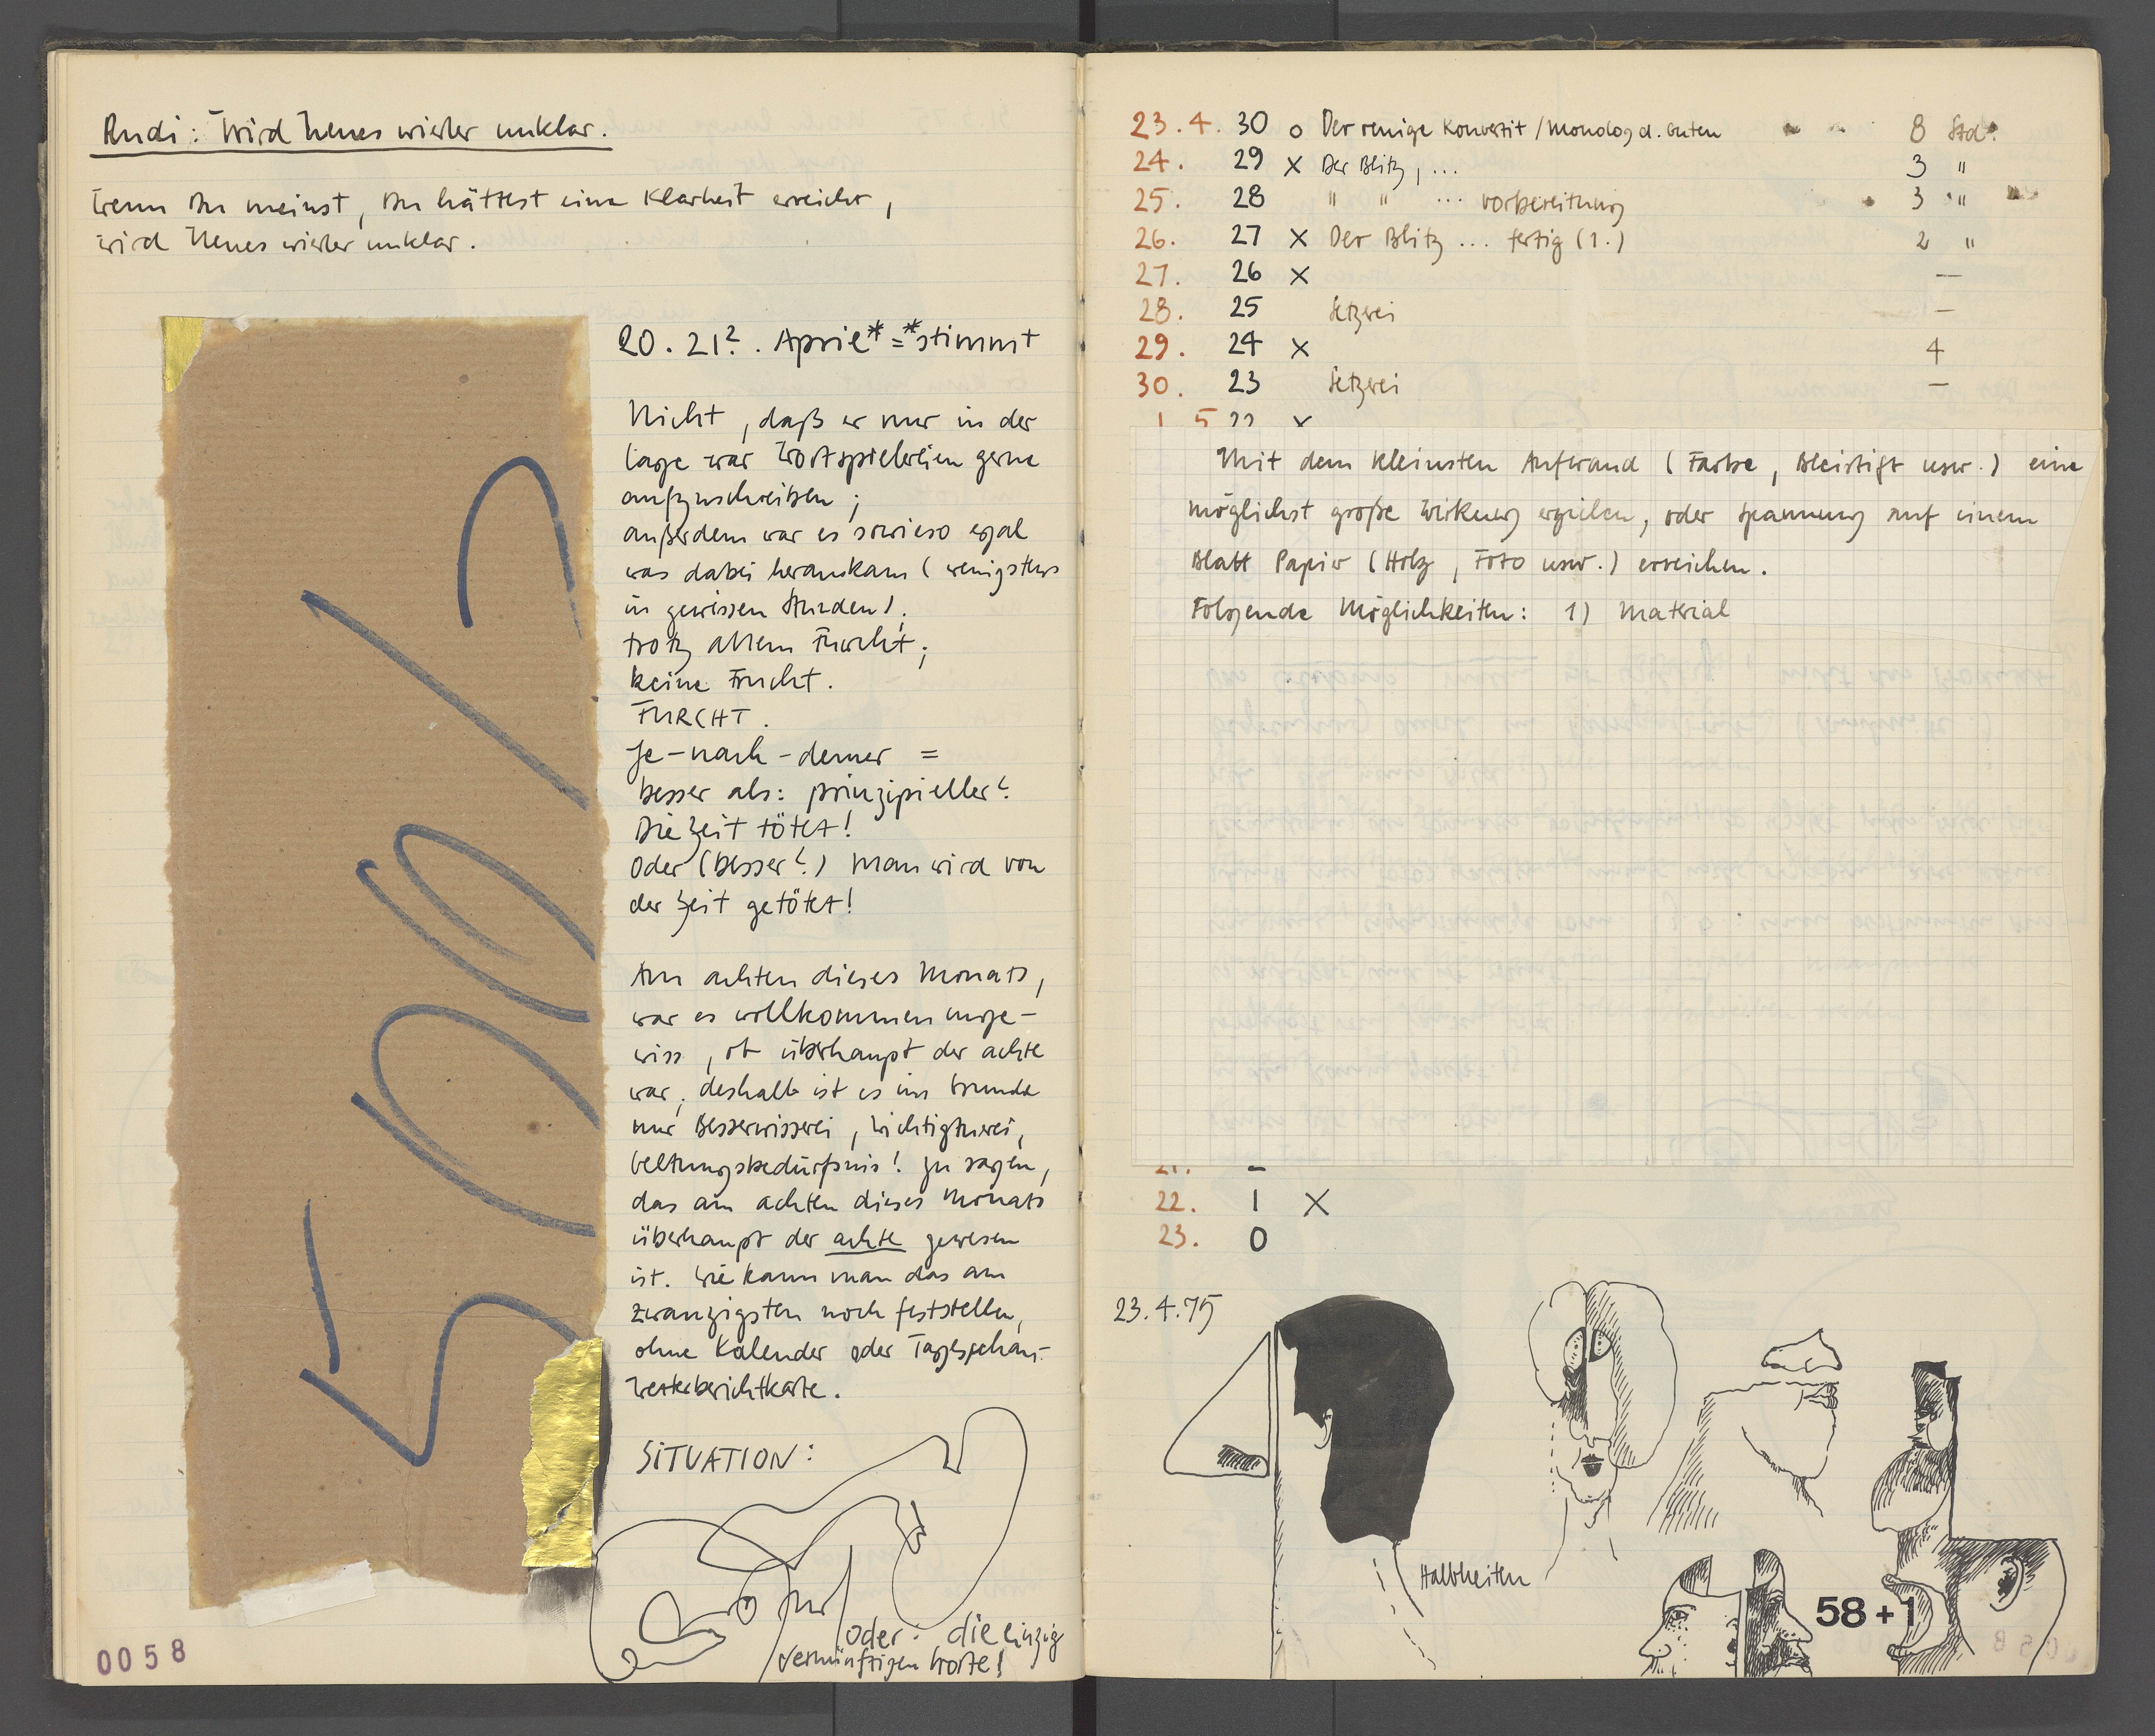 Rudi: Wird Neues wieder unklar.
Wenn Du meinst, Du hättest eine Klarheit erreicht,
wird Neues wieder unklar.
20. 21?. April* = *stimmt
Nicht, daß er nur in der
Lage war Wortspielereien gerne
aufzuschreiben;
außerdem war es sowieso egal
was dabei herauskam (wenigstens
in gewissen Stunden);
trotz allem Furcht;
keine Frucht.
FURCHT.
Je-nach-demer =
besser als: prinzipieller?
Die Zeit tötet!
Oder (besser?) Man wird von
der Zeit getötet!
Am achten dieses Monats,
war es vollkommen unge-
wiss, ob überhaupt der achte
war; deshalb ist es im Grunde
nur Besserwisserei, Wichtigtuerei,
Geltungsbedürfnis! zu sagen,
das am achten dieses Monats
überhaupt der achte gewesen
ist. Wie kann man das am
zwanzigsten noch feststellen,
ohne Kalender oder Tagesschau-
Wetterberichtkarte.
SITUATION:
oder: die einzig
vernünftigen Worte!
0058
23.4. 30 o Der reuige Konvertit/Monolog d. Guten 8 Std.
24. 29 X Der Blitz, ... 3 "
25. 28 " " ... Vorbereitung 3 "
26. 27 X Der Blitz ... fertig (1.) 2 "
27. 26 X —
28. 25 Setzerei —
29. 24 X 4
30. 23 Setzerei —
1 5 22 X
Mit dem kleinsten Aufwand (Farbe, Bleistift usw.) eine
möglichst große Wirkung erzielen, oder Spannung auf einem
Blatt Papier (Holz, Foto usw.) erreichen.
Folgende Möglichkeiten: 1) Material
21.
22. 1 X
23. 0
23.4.75
Halbheiten
58+1